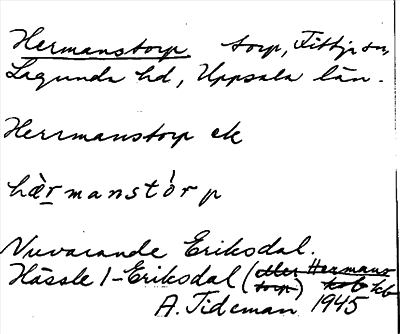 Hermanstorp torp, Fittja sn,
Lagunda hd, Uppsala län.
Herrmanstorp ek
hæ̀rmanstò̀rp
Nuvarande Eriksdal.
Hässle 1 - Eriksdal (eller Hermans
torp) kb
A. Tideman 1945